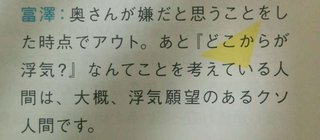 富澤：奥さんが嫌だと思うことをし
た時点でアウト。あと『どこからが
浮気？』なんてことを考えている人
間は、大概、浮気願望のあるクソ
人間です。